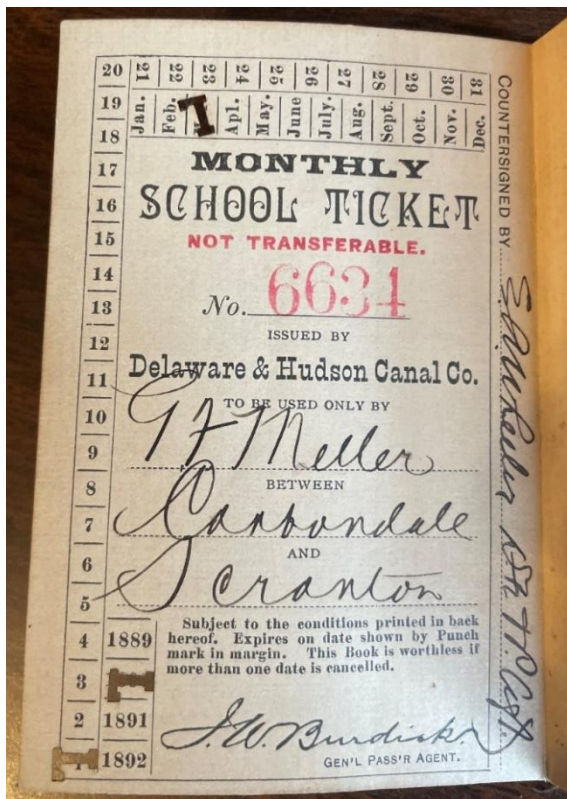 21 22 23 24 25 26 27 28 29 30 31
Jan. Feb. Apl. May. June July. Aug. Sept. Oct. Nov. Dec.
20
19
18
17
16
15
14
13
12
11
10
9
8
7
6
5
4
3
2
1889
1891
1892
MONTHLY
SCHOOL TICKET
NOT TRANSFERABLE.
No. 6634
ISSUED BY
Delaware & Hudson Canal Co.
TO BE USED ONLY BY
G F Meller
BETWEEN
Carbondale
AND
Scranton
Subject to the conditions printed in back
hereof. Expires on date shown by Punch
mark in margin. This Book is worthless if
more than one date is cancelled.
J. W. Burdick.
GEN'L PASS'R AGENT.
COUNTERSIGNED BY